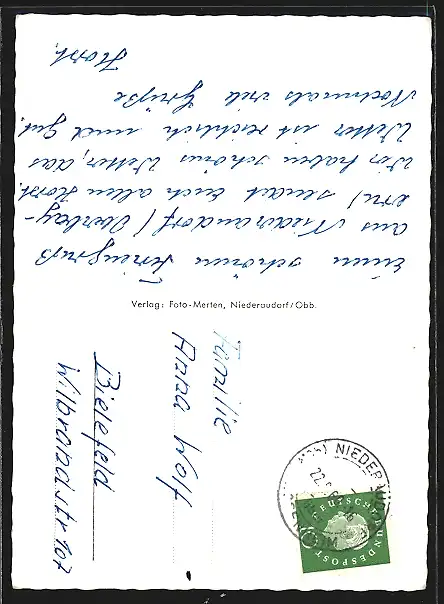 Einen schönen Feriengruß
aus Niederaudorf (Oberbay-
ern) sendet Euch allen Horst.
Wir haben schönes Wetter, das
Wetter ist reichlich und gut.
Nochmals viele Grüße
Horst.
Verlag: Foto-Merten, Niederaudorf/Obb.
Familie
Anna Wolf
Bielefeld
Wilbrandstr 107
NIEDERAUDORF
DEUTSCHE BUNDESPOST